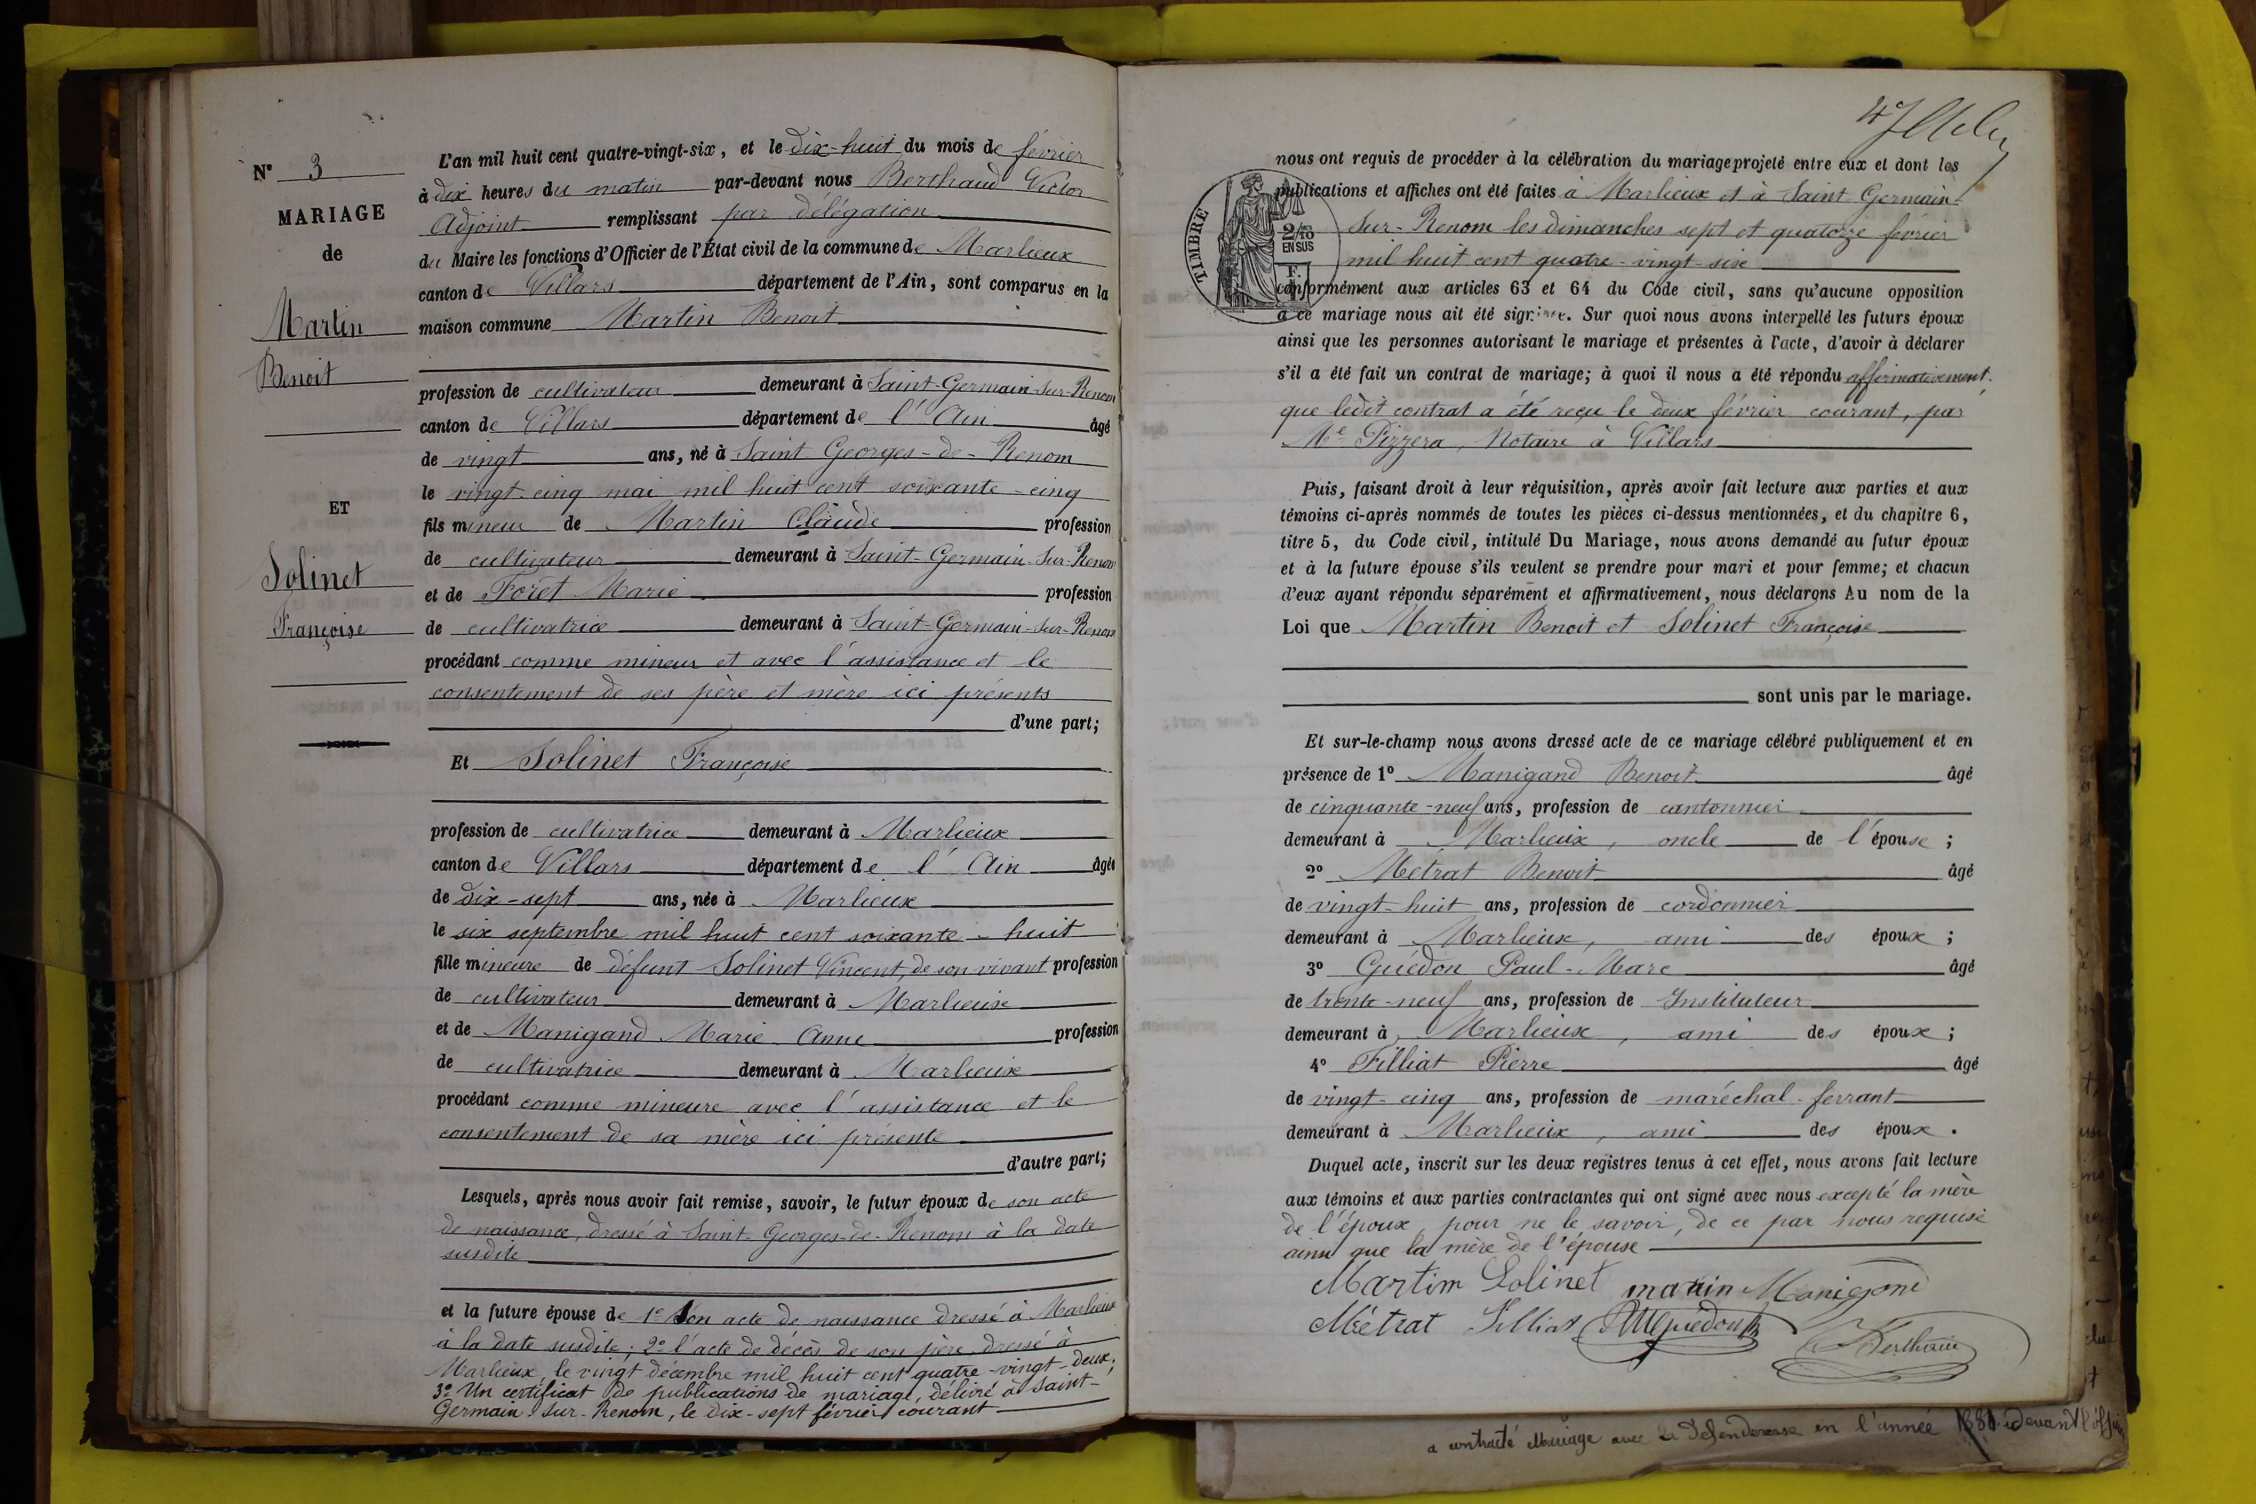 N° 3
MARIAGE
de
Martin
Benoit
ET
Solinet
Françoise
L'an mil huit cent quatre-vingt-six, et le dix-huit du mois de février
à dix heures du matin par-devant nous Berthaud Victor
Adjoint remplissant par délégation
du Maire les fonctions d'Officier de l'État civil de la commune de Marlieux
canton de Villars département de l'Ain, sont comparus en la
maison commune Martin Benoit
profession de cultivateur demeurant à Saint-Germain-sur-Renom
canton de Villars département de l'Ain âgé
de vingt ans, né à Saint Georges-de-Renom
le vingt-cinq mai mil huit cent soixante-cinq
fils mineur de Martin Claude profession
de cultivateur demeurant à Saint-Germain-sur-Renom
et de Foret Marie profession
de cultivatrice demeurant à Saint-Germain-sur-Renom
procédant comme mineur et avec l'assistance et le
consentement de ses père et mère ici présents
d'une part;
Et Solinet Françoise
profession de cultivatrice demeurant à Marlieux
canton de Villars département de l'Ain âgée
de dix-sept ans, née à Marlieux
le six septembre mil huit cent soixante-huit
fille mineure de défunt Solinet Vincent, de son vivant profession
de cultivateur demeurant à Marlieux
et de Manigand Marie Anne profession
de cultivatrice demeurant à Marlieux
procédant comme mineure avec l'assistance et le
consentement de sa mère ici présente
d'autre part;
Lesquels, après nous avoir fait remise, savoir, le futur époux de son acte
de naissance, dressé à Saint-Georges-de-Renom à la date
susdite
et la future épouse de 1° Son acte de naissance dressé à Marlieux
à la date susdite; 2° l'acte de décès de son père, dressé à
Marlieux, le vingt décembre mil huit cent quatre-vingt-deux;
3° Un certificat de publications de mariage, délivré à Saint-
Germain-sur-Renom, le dix-sept février courant
47
TIMBRE
2/10
EN SUS
nous ont requis de procéder à la célébration du mariage projeté entre eux et dont les
publications et affiches ont été faites à Marlieux et à Saint Germain-
sur-Renom les dimanches sept et quatorze février
mil huit cent quatre-vingt-six
conformément aux articles 63 et 64 du Code civil, sans qu'aucune opposition
à ce mariage nous ait été signifiée. Sur quoi nous avons interpellé les futurs époux
ainsi que les personnes autorisant le mariage et présentes à l'acte, d'avoir à déclarer
s'il a été fait un contrat de mariage; à quoi il nous a été répondu affirmativement.
que ledit contrat a été reçu le deux février courant, par
Me Pizzera, Notaire à Villars
Puis, faisant droit à leur réquisition, après avoir fait lecture aux parties et aux
témoins ci-après nommés de toutes les pièces ci-dessus mentionnées, et du chapitre 6,
titre 5, du Code civil, intitulé Du Mariage, nous avons demandé au futur époux
et à la future épouse s'ils veulent se prendre pour mari et pour femme; et chacun
d'eux ayant répondu séparément et affirmativement, nous déclarons Au nom de la
Loi que Martin Benoit et Solinet Françoise
sont unis par le mariage.
Et sur-le-champ nous avons dressé acte de ce mariage célébré publiquement et en
présence de 1° Manigand Benoit âgé
de cinquante-neuf ans, profession de cantonnier
demeurant à Marlieux, oncle de l'épouse;
2° Métrat Benoit âgé
de vingt-huit ans, profession de cordonnier
demeurant à Marlieux, ami des époux;
3° Guédon Paul-Marc âgé
de trente-neuf ans, profession de Instituteur
demeurant à Marlieux, ami des époux;
4° Filliat Pierre âgé
de vingt-cinq ans, profession de maréchal-ferrant
demeurant à Marlieux, ami des époux.
Duquel acte, inscrit sur les deux registres tenus à cet effet, nous avons fait lecture
aux témoins et aux parties contractantes qui ont signé avec nous excepté la mère
de l'époux, pour ne le savoir, de ce par nous requise
ainsi que la mère de l'épouse
Martin Solinet martin Manigand
Métrat Filliat Guédon
Berthaud
a contracté Mariage avec la Défenderesse en l'année devant